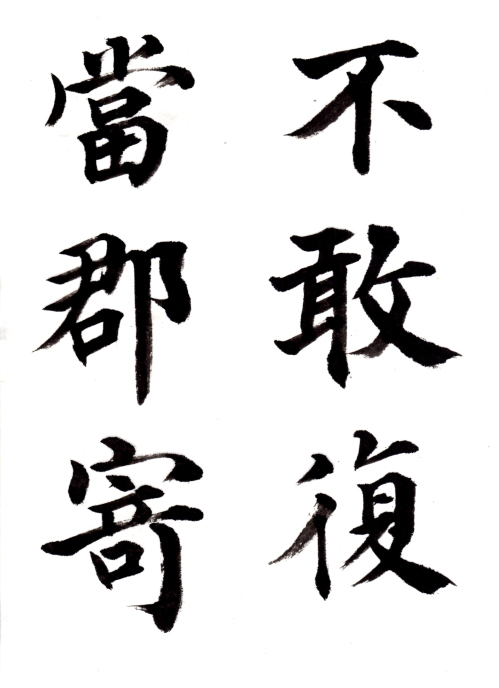 不敢復
當郡寄